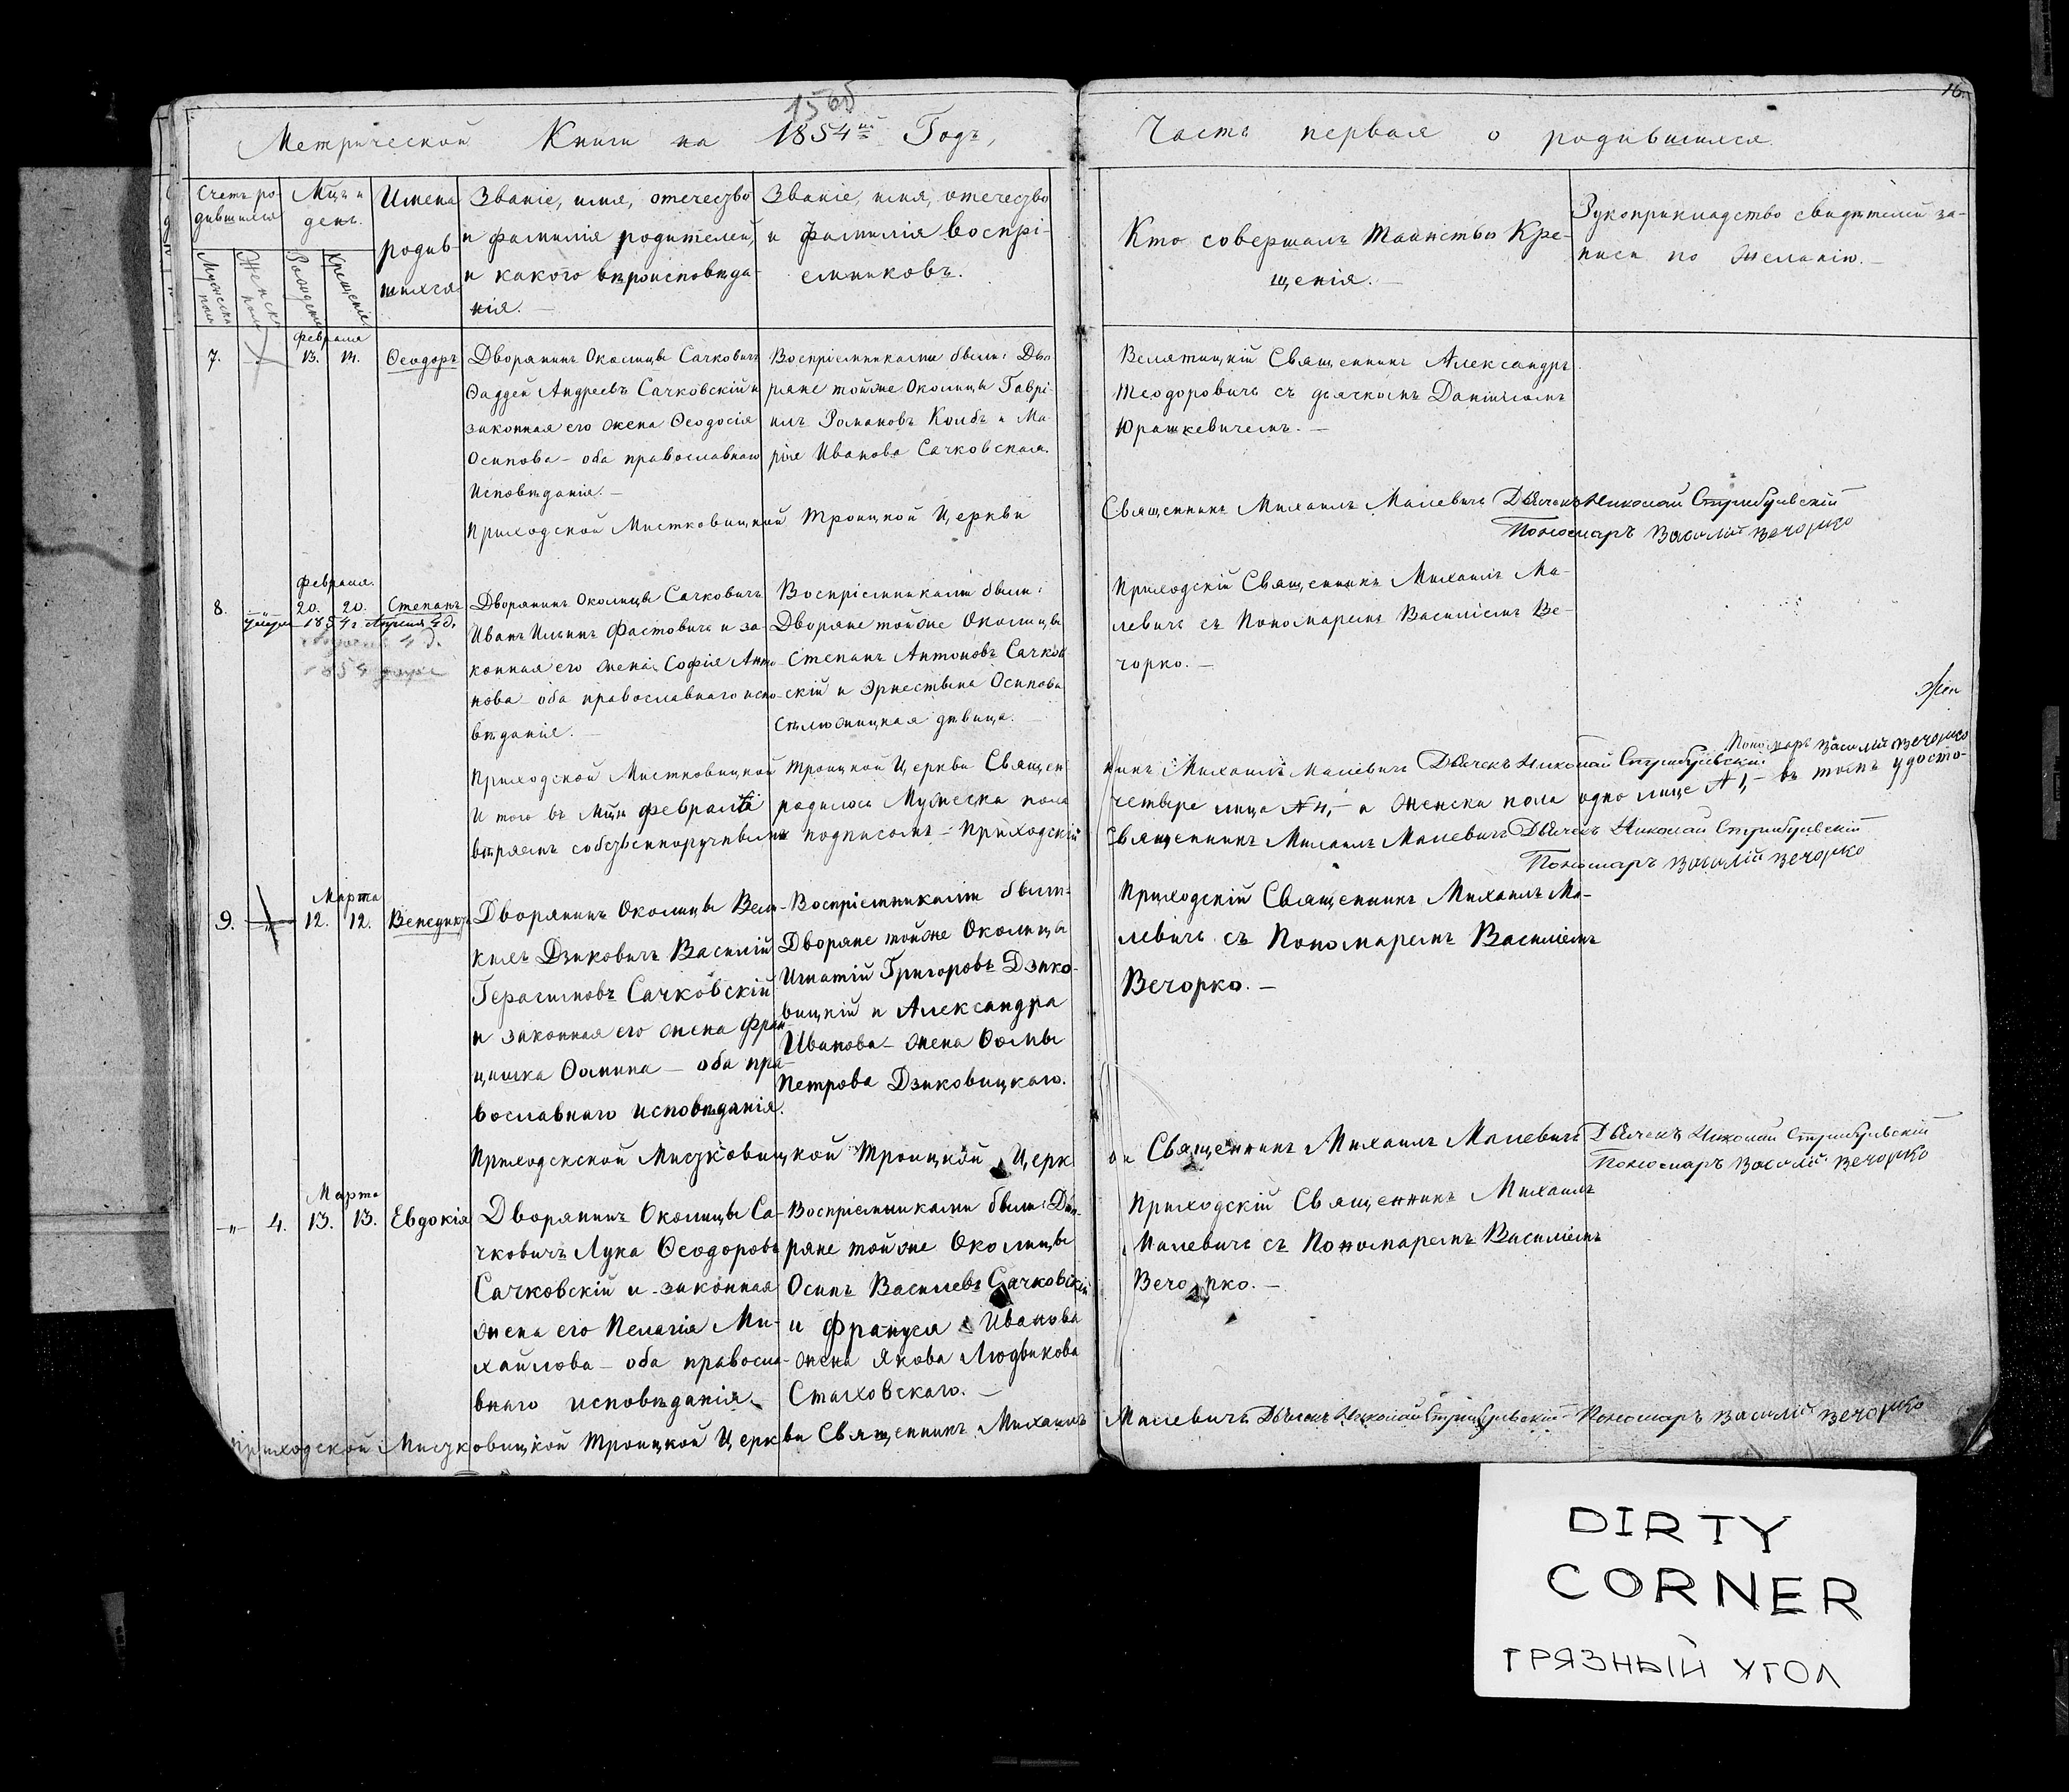 15об
16.
Метрической Книги на 1854й Годъ,
Часть первая о родившихся.
Счетъ ро-
дившихся
Мцъ и
день.
Имена
родив
шихся
Званіе, имя, отечество
и фамилія родителей,
и какого вѣроисповѣда-
нія. —
Званіе, имя, отечество
и фамилія воспрі-
емниковъ.
Кто совершалъ таинство Кре-
щенія. —
Рукоприкладство свидѣтелей за-
писи по желанію. —
Мужеска
пола
Женска
пола
Рожденія
Крещенія
февраля
7.
13.
14.
Ѳеодоръ
Дворянинъ Околицы Сачковичъ
Ѳаддей Андреевъ Сачковскій и
законная его жена Ѳеодосія
Осипова — оба православнаго
Исповѣданія. —
Воспріемниками были: Дво
ряне тойже Околицы Гаврі-
илъ Романовъ Колбъ и Ма-
рія Иванова Сачковская.
Велятицкій Священникъ Александръ
Теодоровичъ съ дьячкомъ Даніиломъ
Юрашкевичемъ. —
Приходской Мистковицкой Троицкой Церкви
Священникъ Михаилъ Малевичъ Дьячекъ Николай
Пономаръ Василій Вечорко
февраля.
8.
„
20.
20.
Степанъ
умеръ 1854 г. Апреля 4 д.
4 д.
1854
Дворянинъ Околицы Сачковичъ
Иванъ Ильинъ Фастовичъ и за-
конная его жена Софія Анто-
нова оба православнаго испо-
вѣданія. —
Воспріемниками были:
Дворяне тойже Околицы
Степанъ Антоновъ Сачков
скій и Эрнестина Осипова
дѣвица. —
Приходскій Священникъ Михаилъ Ма-
левичъ съ Пономаремъ Василіемъ Ве-
чорко. —
Приходской Мистковицкой Троицкой Церкви Священ
никъ Михаилъ Малевичъ Дьячекъ Николай
Пономаръ Василій Вечорко
И того въ Мцѣ февралѣ родилось Мужеска пола
четыре лица № 4, — а Женска пола одно лице № 1, — въ томъ удосто-
вѣряемъ собственноручнымъ подписомъ — Приходскій
Священникъ Михаилъ Малевичъ Дьячекъ Николай
Пономаръ Василій Вечорко
Марта
9.
„
12.
12.
Венедиктъ
Дворянинъ Околицы Вели-
кихъ Дзиковичъ Василій
Герасимовъ Сачковскій
и законная его жена Фран-
цишка Ѳомина — оба пра-
вославнаго исповѣданія.
Воспріемниками были:
Дворяне тойже Околицы
Игнатій Григоровъ Дзико-
вицкій и Александра
Иванова — жена Ѳомы
Петрова Дзиковицкаго.
Приходскій Священникъ Михаилъ Ма-
левичъ съ Пономаремъ Василіемъ
Вечорко. —
Приходскской Мистковицкой Троицкой Церк
ви Священникъ Михаилъ Малевичъ Дьячекъ Николай
Пономаръ Василій Вечорко
Марта
„
4.
13.
13.
Евдокія
Дворянинъ Околицы Са-
чковичъ Лука Ѳеодоровъ
Сачковскій и законная
жена его Пелагія Ми-
хайлова — оба правосла-
внаго исповѣданія.
Воспріемниками были: Дво-
ряне тойже Околицы
Осипъ Васильевъ Сачковскій
и Франуся Иванова
жена Якова Людвикова
Стаховскаго. —
Приходскій Священникъ Михаилъ
Малевичъ съ Пономаремъ Василіемъ
Вечорко. —
Приходской Мистковицкой Троицкой Церкви Священникъ Михаилъ
Малевичъ Дьячекъ Николай Пономаръ Василій Вечорко
DIRTY
CORNER
ГРЯЗНЫЙ УГОЛ